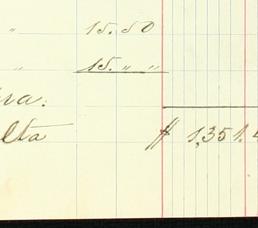 " 15.50
" 15. " "
ra.
lta $ 1,351.